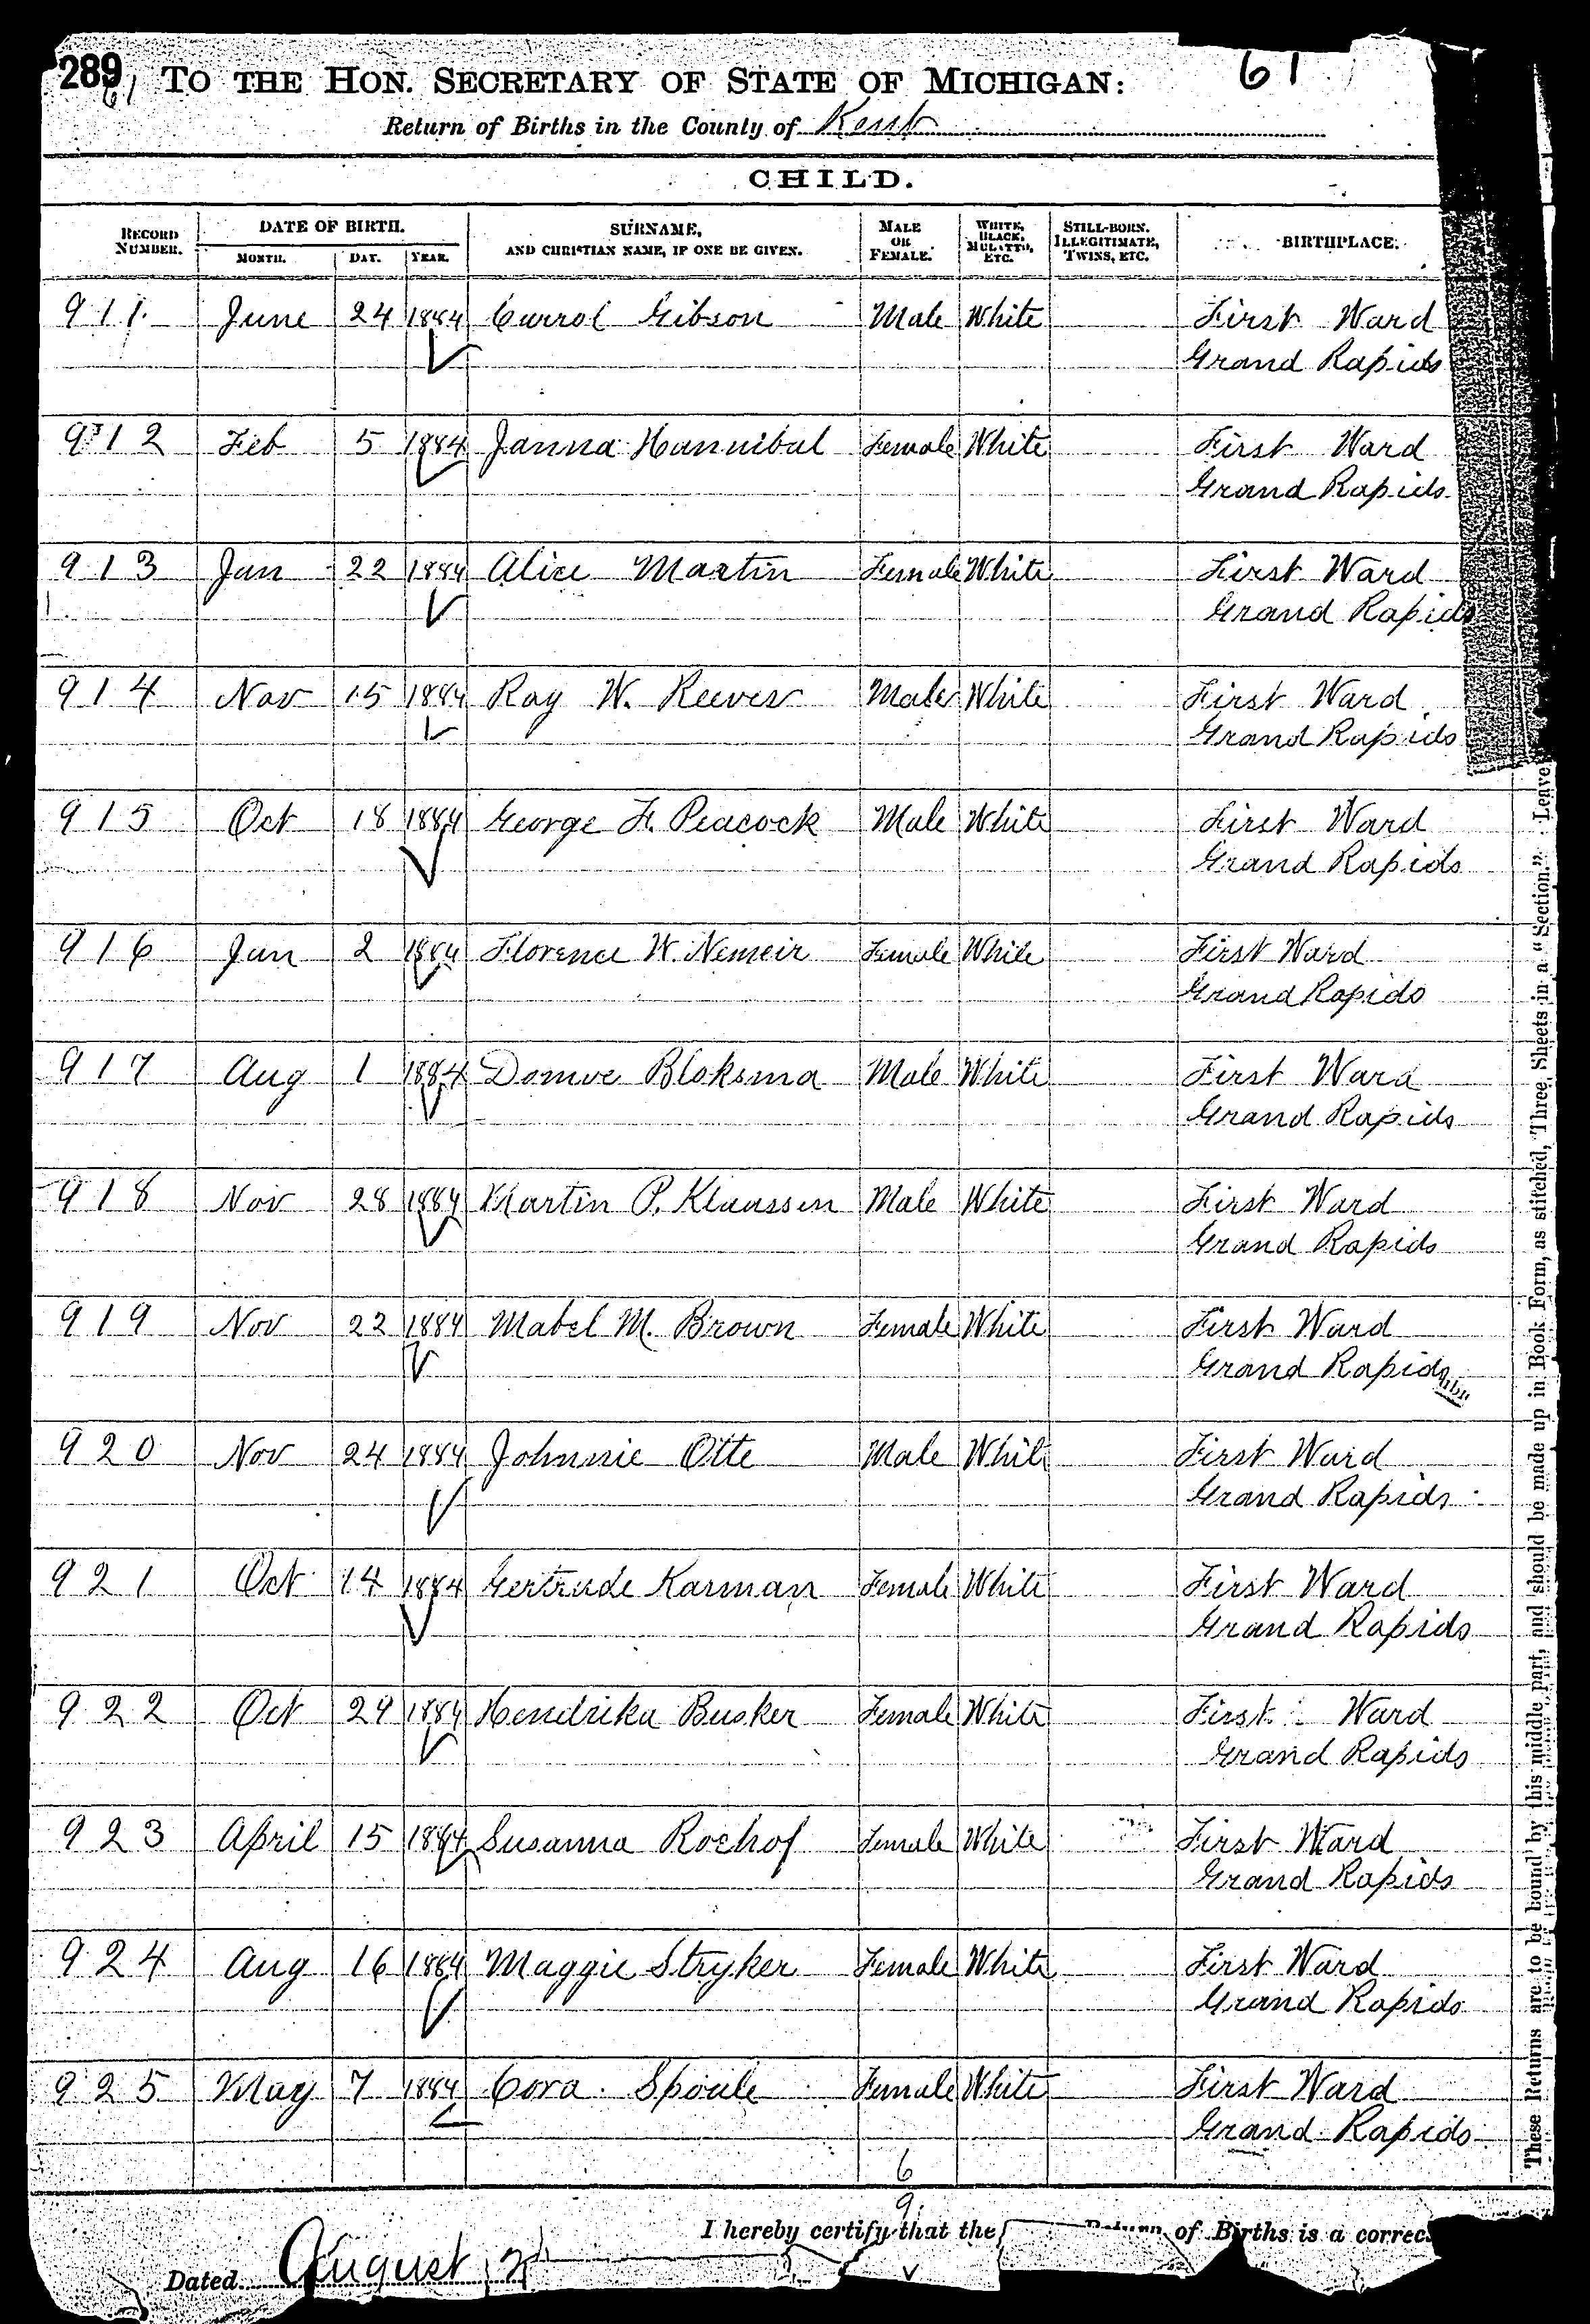 289 TO THE HON. SECRETARY OF STATE OF MICHIGAN: 61
61
Return of Births in the County of Kent
CHILD.
RECORD NUMBER. DATE OF BIRTH. MONTH. DAY. YEAR. SURNAME, AND CHRISTIAN NAME, IF ONE BE GIVEN. MALE OR FEMALE. WHITE, BLACK, MULATTO, ETC. STILL-BORN. ILLEGITIMATE, TWINS, ETC. BIRTHPLACE.
911 June 24 1884 Carrol Gibson Male White First Ward
Grand Rapids
912 Feb 5 1884 Janna Hannibal Female White First Ward
Grand Rapids
913 Jan 22 1884 Alice Martin Female White First Ward
Grand Rapids
914 Nov 15 1884 Ray W. Reeves Male White First Ward
Grand Rapids
915 Oct 18 1884 George F. Peacock Male White First Ward
Grand Rapids
916 Jan 2 1884 Florence W. Nemeir Female White First Ward
Grand Rapids
917 Aug 1 1884 Douwe Bloksma Male White First Ward
Grand Rapids
918 Nov 28 1884 Martin P. Klaassen Male White First Ward
Grand Rapids
919 Nov 22 1884 Mabel M. Brown Female White First Ward
Grand Rapids
920 Nov 24 1884 Johnnie Otte Male White First Ward
Grand Rapids
921 Oct 14 1884 Gertrude Karman Female White First Ward
Grand Rapids
922 Oct 29 1884 Hendrika Busker Female White First Ward
Grand Rapids
923 April 15 1884 Susanna Roelof Female White First Ward
Grand Rapids
924 Aug 16 1884 Maggie Stryker Female White First Ward
Grand Rapids
925 May 7 1884 Cora Spoule Female White First Ward
Grand Rapids
6
9
I hereby certify that the Return of Births is a correc
Dated August
These Returns are to be bound by this middle part, and should be made up in Book Form, as stitched, Three Sheets in a "Section." Leave